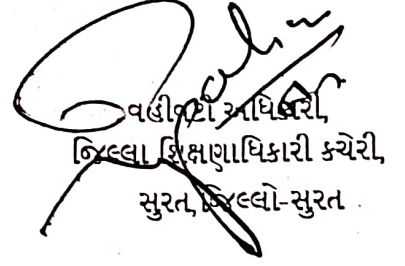 વહીવટી અધિકારી,
જિલ્લા શિક્ષણાધિકારી કચેરી,
સુરત, જિલ્લો-સુરત